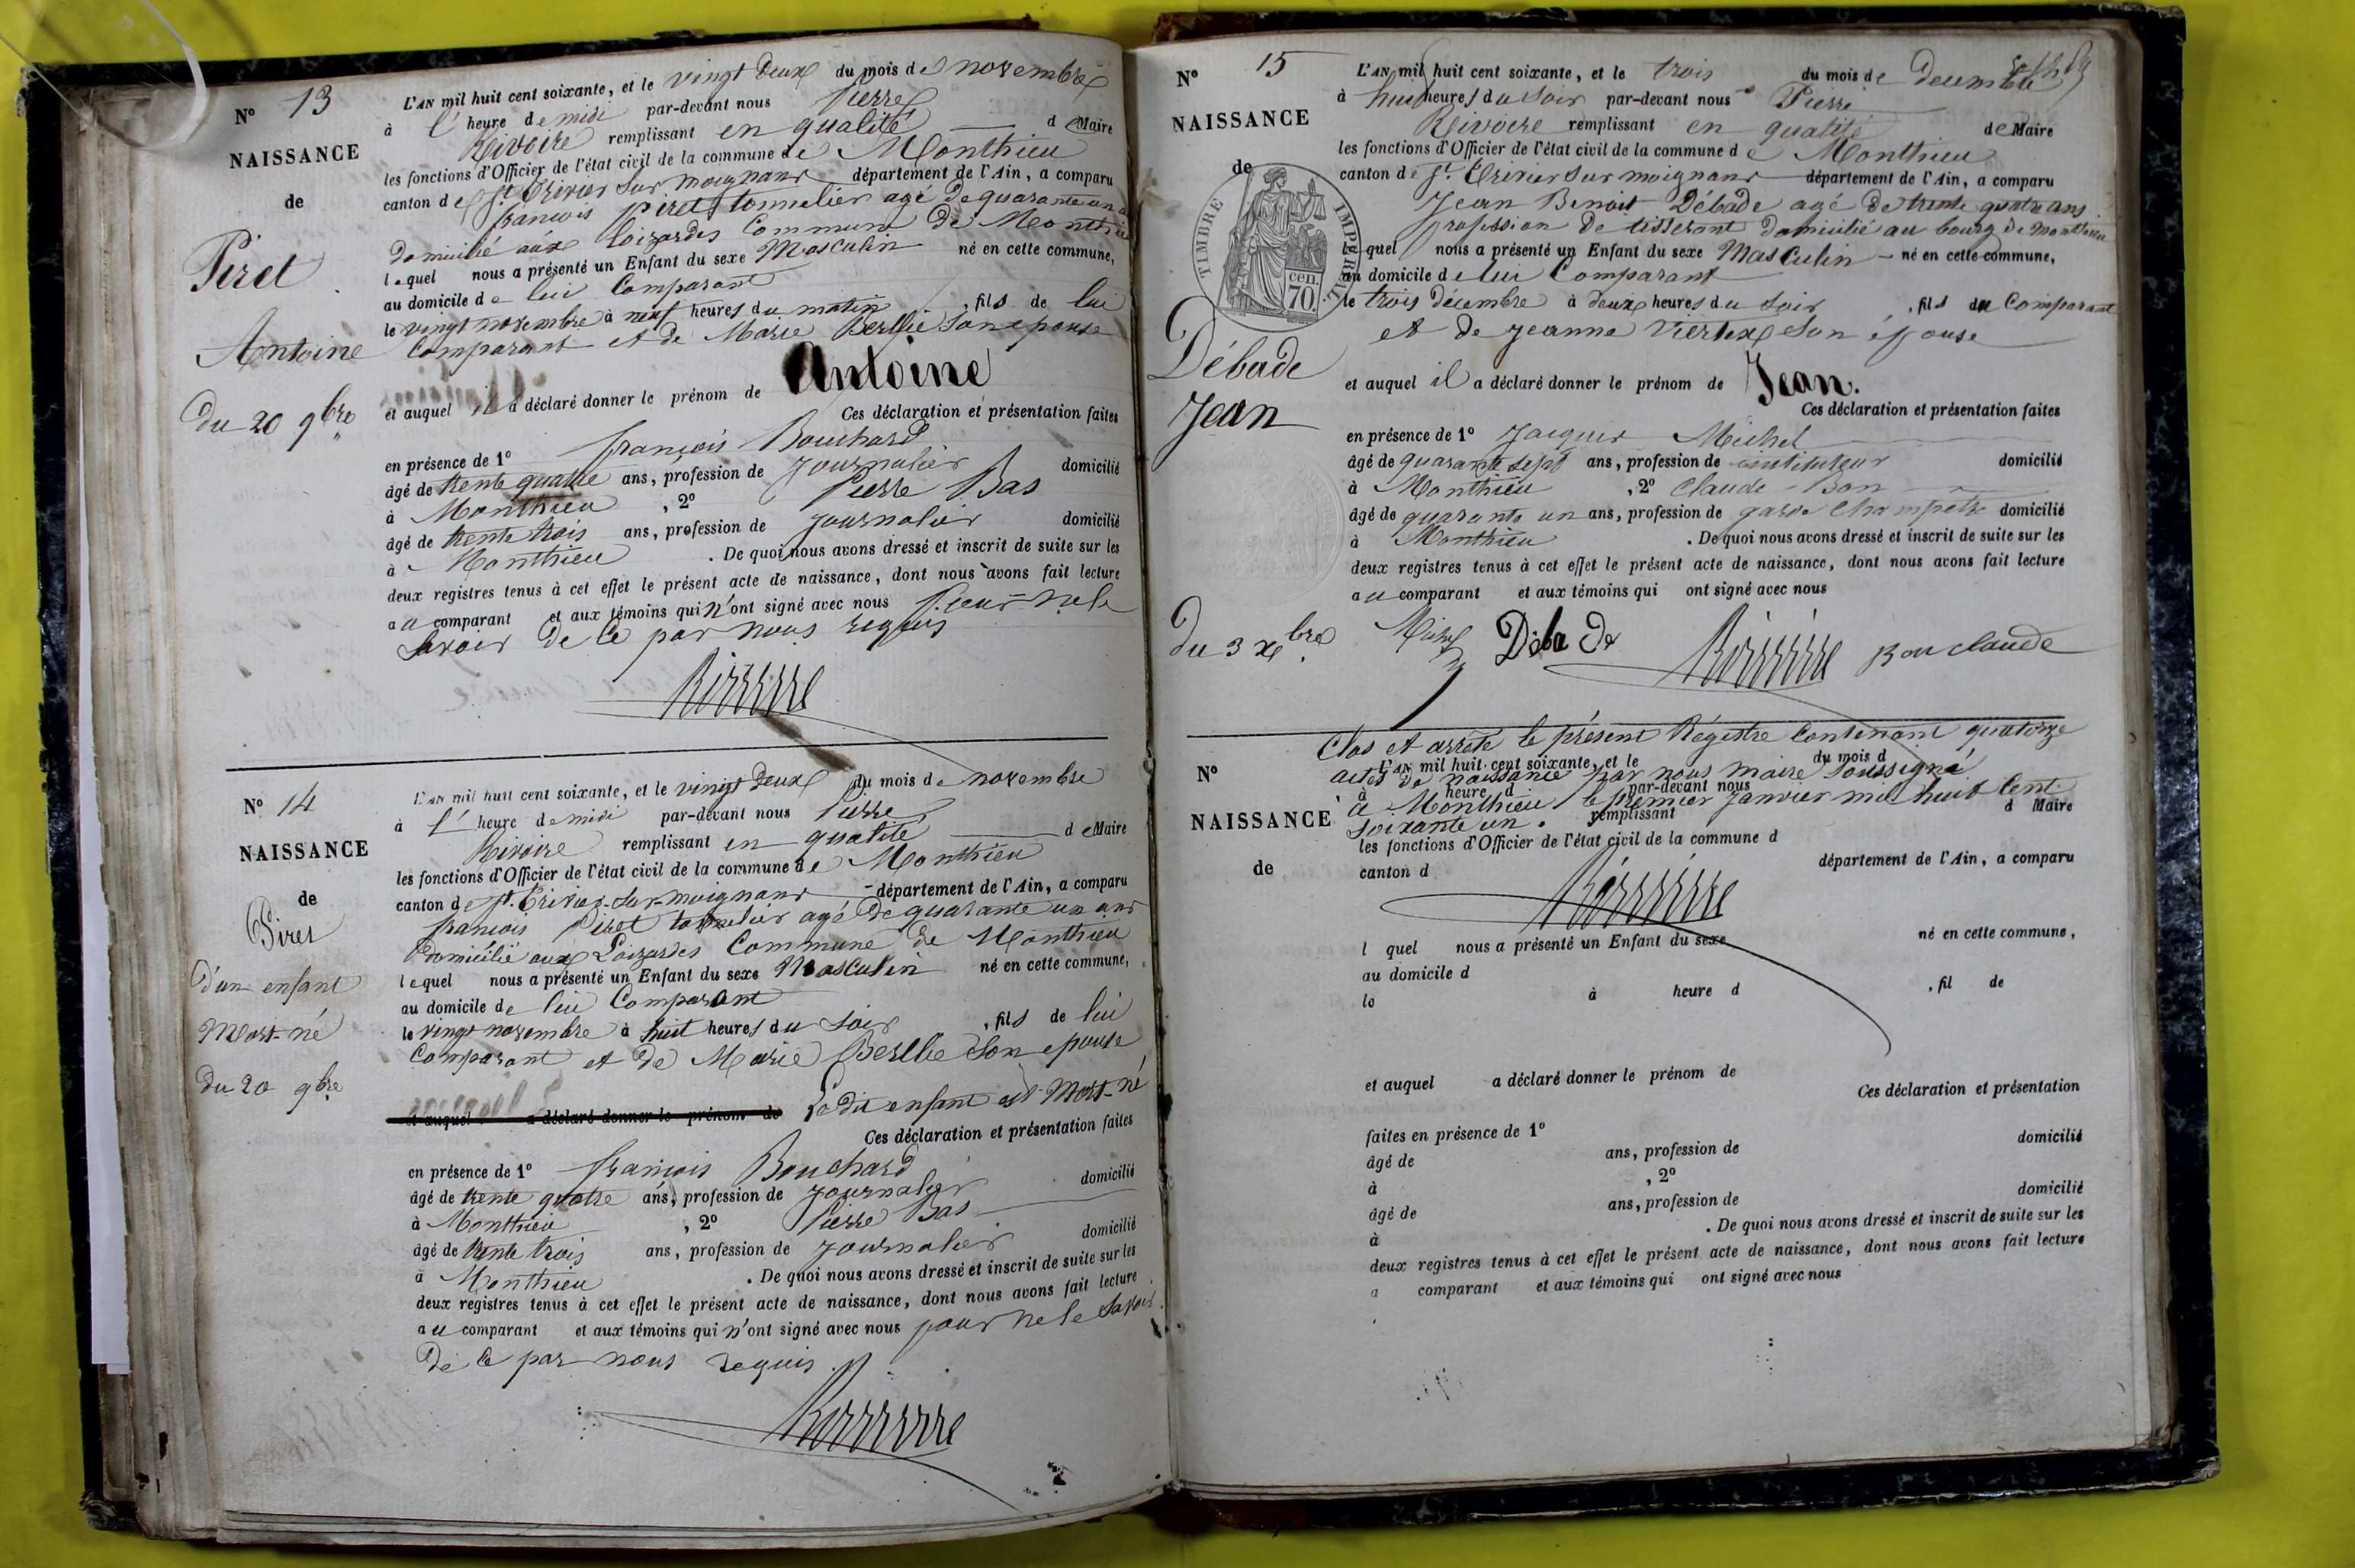 N° 13
NAISSANCE
de
Piret
Antoine
Du 20 9bre
L'AN mil huit cent soixante, et le vingt deux du mois de novembre
à l' heure de midi par-devant nous Pierre
Rivoire remplissant en qualité de Maire
les fonctions d'Officier de l'état civil de la commune de Monthieu
canton de St. Trivier sur moignans département de l'Ain, a comparu
françois Piret tonnelier agé de quarante un ans
domicilié aux Loizardes Commune de Monthieu
lequel nous a présenté un Enfant du sexe Masculin né en cette commune,
au domicile de lui Comparant
le vingt novembre à neuf heures du matin, fils de lui
Comparant et de Marie Berllie son epouse
et auquel il a déclaré donner le prénom de Antoine
Ces déclaration et présentation faites
en présence de 1° françois Bouchard
âgé de trente quatre ans, profession de journalier domicilié
à Monthieu, 2° Pierre Bas
âgé de trente trois ans, profession de journalier domicilié
à Monthieu. De quoi nous avons dressé et inscrit de suite sur les
deux registres tenus à cet effet le présent acte de naissance, dont nous avons fait lecture
au comparant et aux témoins qui n'ont signé avec nous pour ne le
savoir de ce par nous requis
Rivoire
N° 14
NAISSANCE
de
Piret
D'un enfant
Mort-né
du 20 9bre
L'AN mil huit cent soixante, et le vingt deux du mois de novembre
à l' heure de midi par-devant nous Pierre
Rivoire remplissant en qualité de Maire
les fonctions d'Officier de l'état civil de la commune de Monthieu
canton de St. Trivier-sur-moignans département de l'Ain, a comparu
françois Piret tonnelier agé de quarante un ans
domicilié aux Loizardes Commune de Monthieu
lequel nous a présenté un Enfant du sexe Masculin né en cette commune,
au domicile de lui Comparant
le vingt novembre à huit heures du soir, fils de lui
Comparant et de Marie Berllie son epouse
et auquel a déclaré donner le prénom de Le dit enfant est Mort-né
Ces déclaration et présentation faites
en présence de 1° françois Bouchard
âgé de trente quatre ans, profession de journalier domicilié
à Monthieu, 2° Pierre Bas
âgé de trente trois ans, profession de journalier domicilié
à Monthieu. De quoi nous avons dressé et inscrit de suite sur les
deux registres tenus à cet effet le présent acte de naissance, dont nous avons fait lecture
au comparant et aux témoins qui n'ont signé avec nous pour ne le savoir
de ce par nous requis.
Rivoire
N° 15
NAISSANCE
de
TIMBRE IMPERIAL
70 cen.
Débade
Jean
Du 3 xbre
L'AN mil huit cent soixante, et le trois du mois de decembre
à huit heures du soir par-devant nous Pierre
Rivoire remplissant en qualité de Maire
les fonctions d'Officier de l'état civil de la commune de Monthieu
canton de St. Trivier sur moignans département de l'Ain, a comparu
Jean Benoit Débade agé de trente quatre ans
profession de tisserant domicilié au bourg de Monthieu
lequel nous a présenté un Enfant du sexe Masculin né en cette commune,
au domicile de lui Comparant
le trois décembre à deux heures du soir, fils du Comparant
et de jeanne Vierlex son épouse
et auquel il a déclaré donner le prénom de Jean.
Ces déclaration et présentation faites
en présence de 1° Jacques Michel
âgé de quarante sept ans, profession de instituteur domicilié
à Monthieu, 2° Claude Bon
âgé de quarante un ans, profession de garde Champêtre domicilié
à Monthieu. De quoi nous avons dressé et inscrit de suite sur les
deux registres tenus à cet effet le présent acte de naissance, dont nous avons fait lecture
au comparant et aux témoins qui ont signé avec nous
Michel Débade Rivoire Bon claude
Clos et arrêté le présent Régistre Contenant quatorze
actes de naissance par nous maire soussigné
à Monthieu le premier Janvier mil huit Cent
soixante un.
Rivoire
N°
NAISSANCE
de
L'AN mil huit cent soixante, et le du mois d
à heure d par-devant nous
remplissant d Maire
les fonctions d'Officier de l'état civil de la commune d
canton d département de l'Ain, a comparu
l quel nous a présenté un Enfant du sexe né en cette commune,
au domicile d
le à heure d, fil de
et auquel a déclaré donner le prénom de
Ces déclaration et présentation
faites en présence de 1°
âgé de ans, profession de domicilié
à, 2°
âgé de ans, profession de domicilié
à. De quoi nous avons dressé et inscrit de suite sur les
deux registres tenus à cet effet le présent acte de naissance, dont nous avons fait lecture
a comparant et aux témoins qui ont signé avec nous